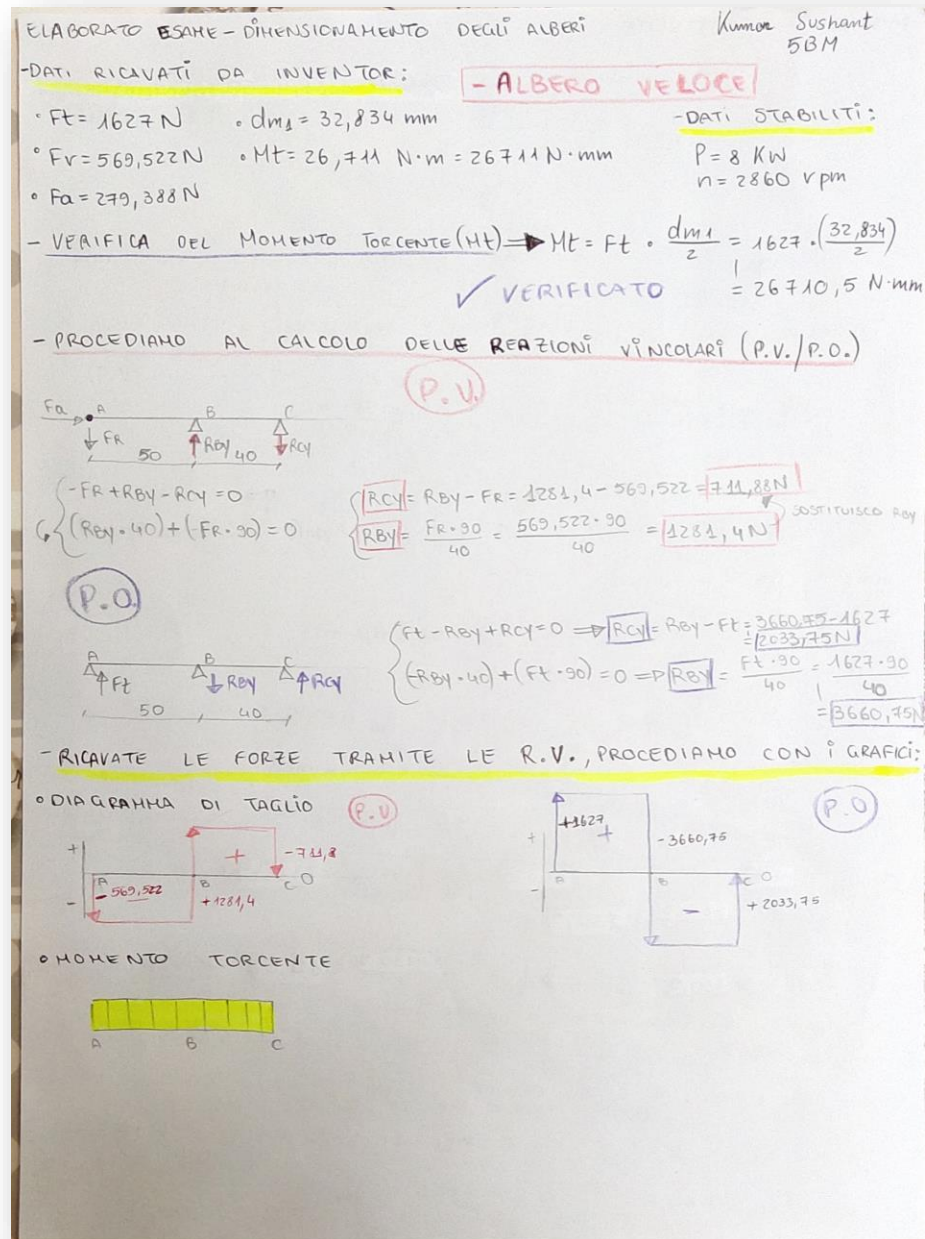 ELABORATO ESAME - DIMENSIONAMENTO DEGLI ALBERI
Kumar Sushant
5BM
- DATI RICAVATI DA INVENTOR:
- ALBERO VELOCE
• Ft = 1627 N • dm1 = 32,834 mm
- DATI STABILITI:
• Fr = 569,522 N • Mt = 26,711 N·m = 26711 N·mm
P = 8 KW
n = 2860 rpm
• Fa = 279,388 N
- VERIFICA DEL MOMENTO TORCENTE (Mt) => Mt = Ft · dm1/2 = 1627 · (32,834/2)
= 26710,5 N·mm
✓ VERIFICATO
- PROCEDIAMO AL CALCOLO DELLE REAZIONI VINCOLARI (P.V./P.O.)
P.V.
Fa A B C
FR 50 RBY 40 RCY
{ -FR + RBY - RCY = 0
(RBY · 40) + (-FR · 90) = 0
{ RCY = RBY - FR = 1281,4 - 569,522 = 711,88N
SOSTITUISCO RBY
RBY = FR · 90/40 = 569,522 · 90/40 = 1281,4N
P.O.
A B C
Ft RBY RCY
50 40
{ Ft - RBY + RCY = 0 => RCY = RBY - Ft = 3660,75 - 1627
= 2033,75N
(-RBY · 40) + (Ft · 90) = 0 => RBY = Ft · 90/40 = 1627 · 90/40
= 3660,75N
- RICAVATE LE FORZE TRAMITE LE R.V., PROCEDIAMO CON I GRAFICI:
• DIAGRAMMA DI TAGLIO P.V
P.O
+ + - 711,8
A - 569,522 B C 0
- + 1281,4
+1627
+ + - 3660,75
A B C 0
- - + 2033,75
• MOMENTO TORCENTE
A B C